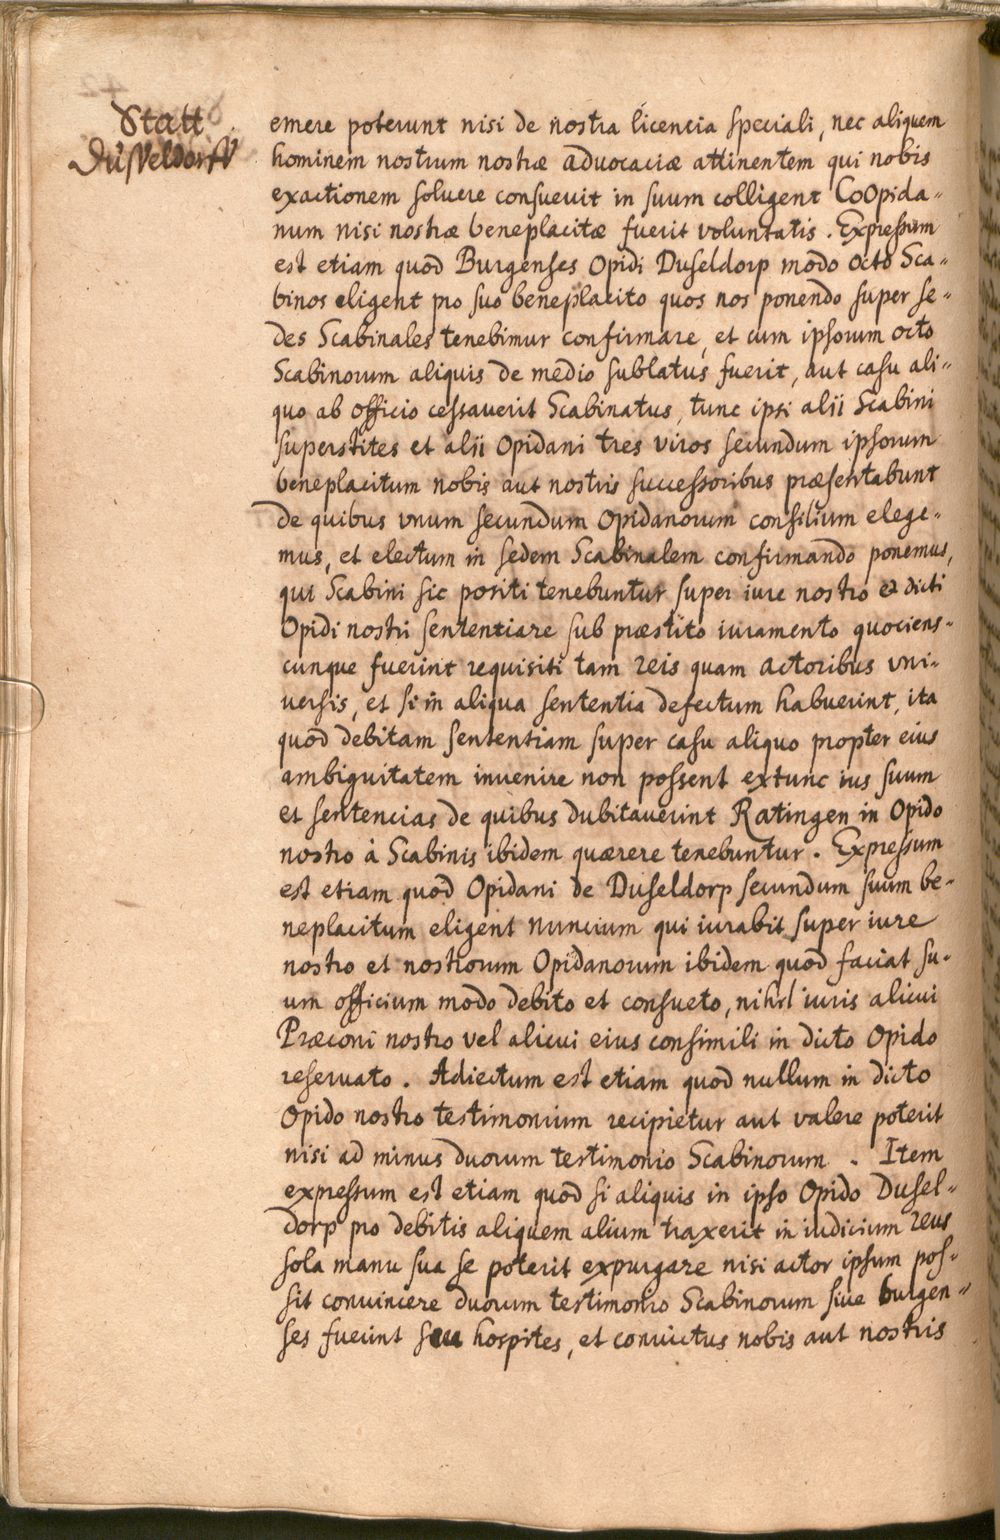 Statt
Düsseldorff
emere poterunt nisi de nostra licencia speciali, nec aliquem
hominem nostrum nostræ advocaciæ attinentem qui nobis
exactionem soluere consueuit in suum colligent CoOpida-
num nisi nostræ beneplacitæ fuerit voluntatis. Expressum
est etiam quod Burgenses Opidi Duseldorp modo octo Sca-
binos eligent pro suo beneplacito quos nos ponendo super se-
des Scabinales tenebimur confirmare, et cum ipsorum octo
Scabinorum aliquis de medio sublatus fuerit, aut casu ali-
quo ab officio cessauerit Scabinatus, tunc ipsi alii Scabini
superstites et alii Opidani tres viros secundum ipsorum
beneplacitum nobis aut nostris successoribus præsentabunt
de quibus vnum secundum Opidanorum consilium elege-
mus, et electum in sedem Scabinalem confirmando ponemus,
qui Scabini sic positi tenebuntur super iure nostro et dicti
Opidi nostri sententiare sub præstito iuramento quociens-
cunque fuerint requisiti tam reis quam actoribus vni-
uersis, et si in aliqua sententia defectum habuerint, ita
quod debitam sententiam super casu aliquo propter eius
ambiguitatem inuenire non possent extunc ius suum
et sentencias de quibus dubitauerint Ratingen in Opido
nostro à Scabinis ibidem quærere tenebuntur. Expressum
est etiam quod Opidani de Duseldorp secundum suum be-
neplacitum eligent nuncium qui iurabit super iure
nostro et nostrorum Opidanorum ibidem quod faciat su-
um officium modo debito et consueto, nihil iuris alicui
Præconi nostro vel alicui eius consimili in dicto Opido
reseruato. Adiectum est etiam quod nullum in dicto
Opido nostro testimonium recipietur aut valere poterit
nisi ad minus duorum testimonio Scabinorum. Item
expressum est etiam quod si aliquis in ipso Opido Dusel-
dorp pro debitis aliquem alium traxerit in iudicium reus
sola manu sua se poterit expurgare nisi actor ipsum pos-
sit conuincere duorum testimonio Scabinorum siue burgen-
ses fuerint seu hospites, et conuictus nobis aut nostris